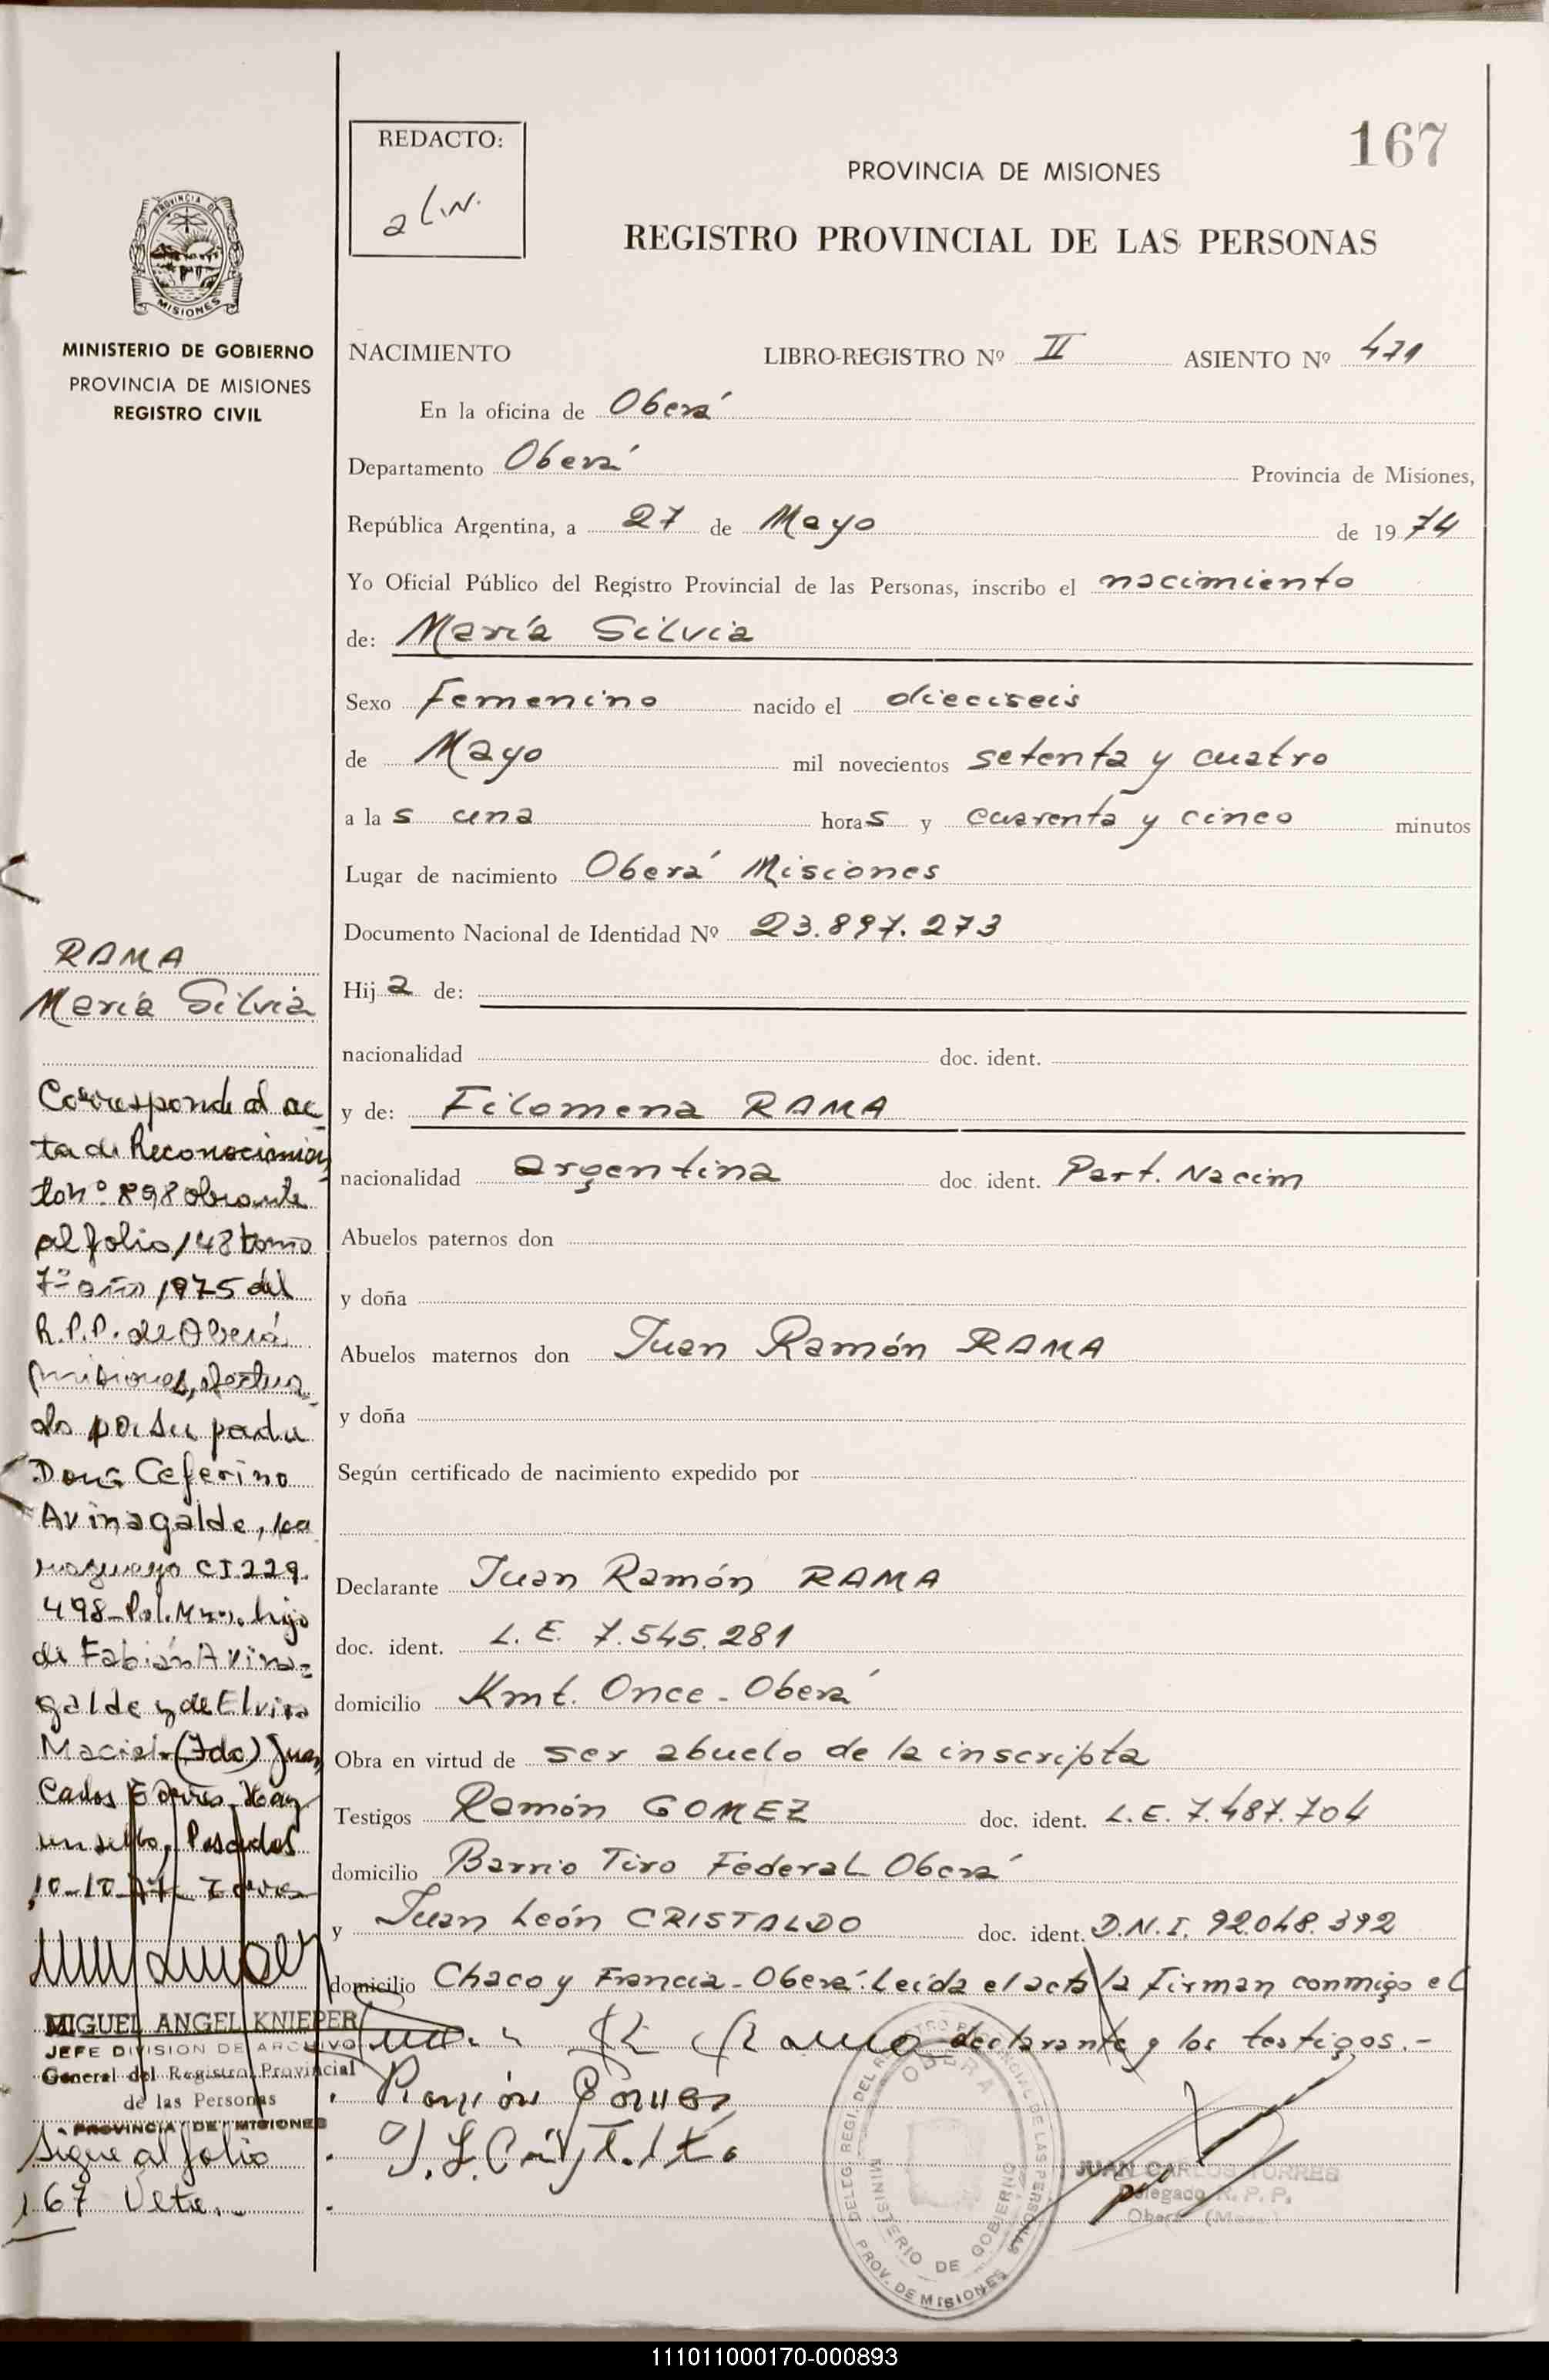 167
REDACTO:
PROVINCIA DE MISIONES
REGISTRO PROVINCIAL DE LAS PERSONAS
PROVINCIA DE
MISIONES
MINISTERIO DE GOBIERNO
PROVINCIA DE MISIONES
REGISTRO CIVIL
NACIMIENTO LIBRO-REGISTRO Nº II ASIENTO Nº 471
En la oficina de Oberá
Departamento Oberá Provincia de Misiones,
República Argentina, a 27 de Mayo de 1974
Yo Oficial Público del Registro Provincial de las Personas, inscribo el nacimiento
de: María Silvia
Sexo Femenino nacido el dieciseis
de Mayo mil novecientos setenta y cuatro
a las una horas y cuarenta y cinco minutos
Lugar de nacimiento Oberá Misiones
Documento Nacional de Identidad Nº 23.897.273
Hija de:
nacionalidad doc. ident.
y de: Filomena RAMA
nacionalidad argentina doc. ident. Part. Nacim
Abuelos paternos don
y doña
Abuelos maternos don Juan Ramón RAMA
y doña
Según certificado de nacimiento expedido por
Declarante Juan Ramón RAMA
doc. ident. L.E. 7.545.281
domicilio Kmt. Once - Oberá
Obra en virtud de ser abuelo de la inscripta
Testigos Ramón GOMEZ doc. ident. L.E. 7.487.704
domicilio Barrio Tiro Federal Oberá
y Juan León CRISTALDO doc. ident. D.N.I. 92.048.392
domicilio Chaco y Francia - Oberá. Leída el acta la firman conmigo el
declarante y los testigos.-
Ramón Gomez
RAMA
María Silvia
Corresponde al ac
ta de Reconocimien
to nº 898 obrante
al folio 148 tomo
7º año 1975 del
R.P.P. de Oberá
Misiones, efectua
do por su padre
Don: Ceferino
Avinagalde, pa
raguayo CI 229.
498-Pol. Mnes. hijo
de Fabián Avina=
galde y de Elvira
Maciel.-(Fdo) Juan
Carlos Torres-Hay
un sello, Posadas
10-10-77 Torres
MIGUEL ANGEL KNIEPER
JEFE DIVISION DE ARCHIVO
General del Registro Provincial
de las Personas
PROVINCIA DE MISIONES
Sigue al folio
167 Vlto.-
DELEG. REGI. DEL REGISTRO PROVINCIAL DE LAS PERSONAS
OBERA
MINISTERIO DE GOBIERNO
PROV. DE MISIONES
JUAN CARLOS TORRES
Delegado R. P. P.
Oberá (Mnes.)
111011000170-000893